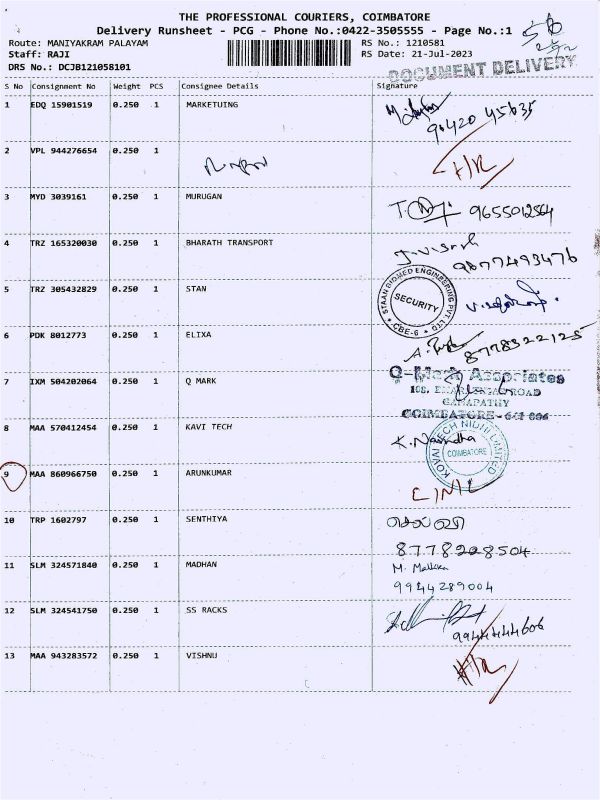 THE PROFESSIONAL COURIERS, COIMBATORE
Delivery Runsheet - PCG - Phone No.:0422-3505555 - Page No.:1
Route: MANIYAKRAM PALAYAM RS No.: 1210581
Staff: RAJI RS Date: 21-Jul-2023
DRS No.: DCJB121058101 DOCUMENT DELIVERY
S No Consignment No Weight PCS Consignee Details Signature
1 EDQ 15901519 0.250 1 MARKETUING
90420 45635
2 VPL 944276654 0.250 1
3 MYD 3039161 0.250 1 MURUGAN
9655012564
4 TRZ 165320030 0.250 1 BHARATH TRANSPORT
9877493476
5 TRZ 305432829 0.250 1 STAN
STAAN BIOMED ENGINEERING PVT. LTD
SECURITY
CBE-6
6 PDK 8012773 0.250 1 ELIXA
8778322125
7 IXM 504202064 0.250 1 Q MARK
Q-Mark Associates
ROAD
GANAPATHY
COIMBATORE - 641 006
8 MAA 570412454 0.250 1 KAVI TECH
K. Nanndha
KOVAI TECH NIDHI LIMITED
COIMBATORE
9 MAA 860966750 0.250 1 ARUNKUMAR
10 TRP 1602797 0.250 1 SENTHIYA
8778228504
11 SLM 324571840 0.250 1 MADHAN
M.
9944289004
12 SLM 324541750 0.250 1 SS RACKS
9944444606
13 MAA 943283572 0.250 1 VISHNU